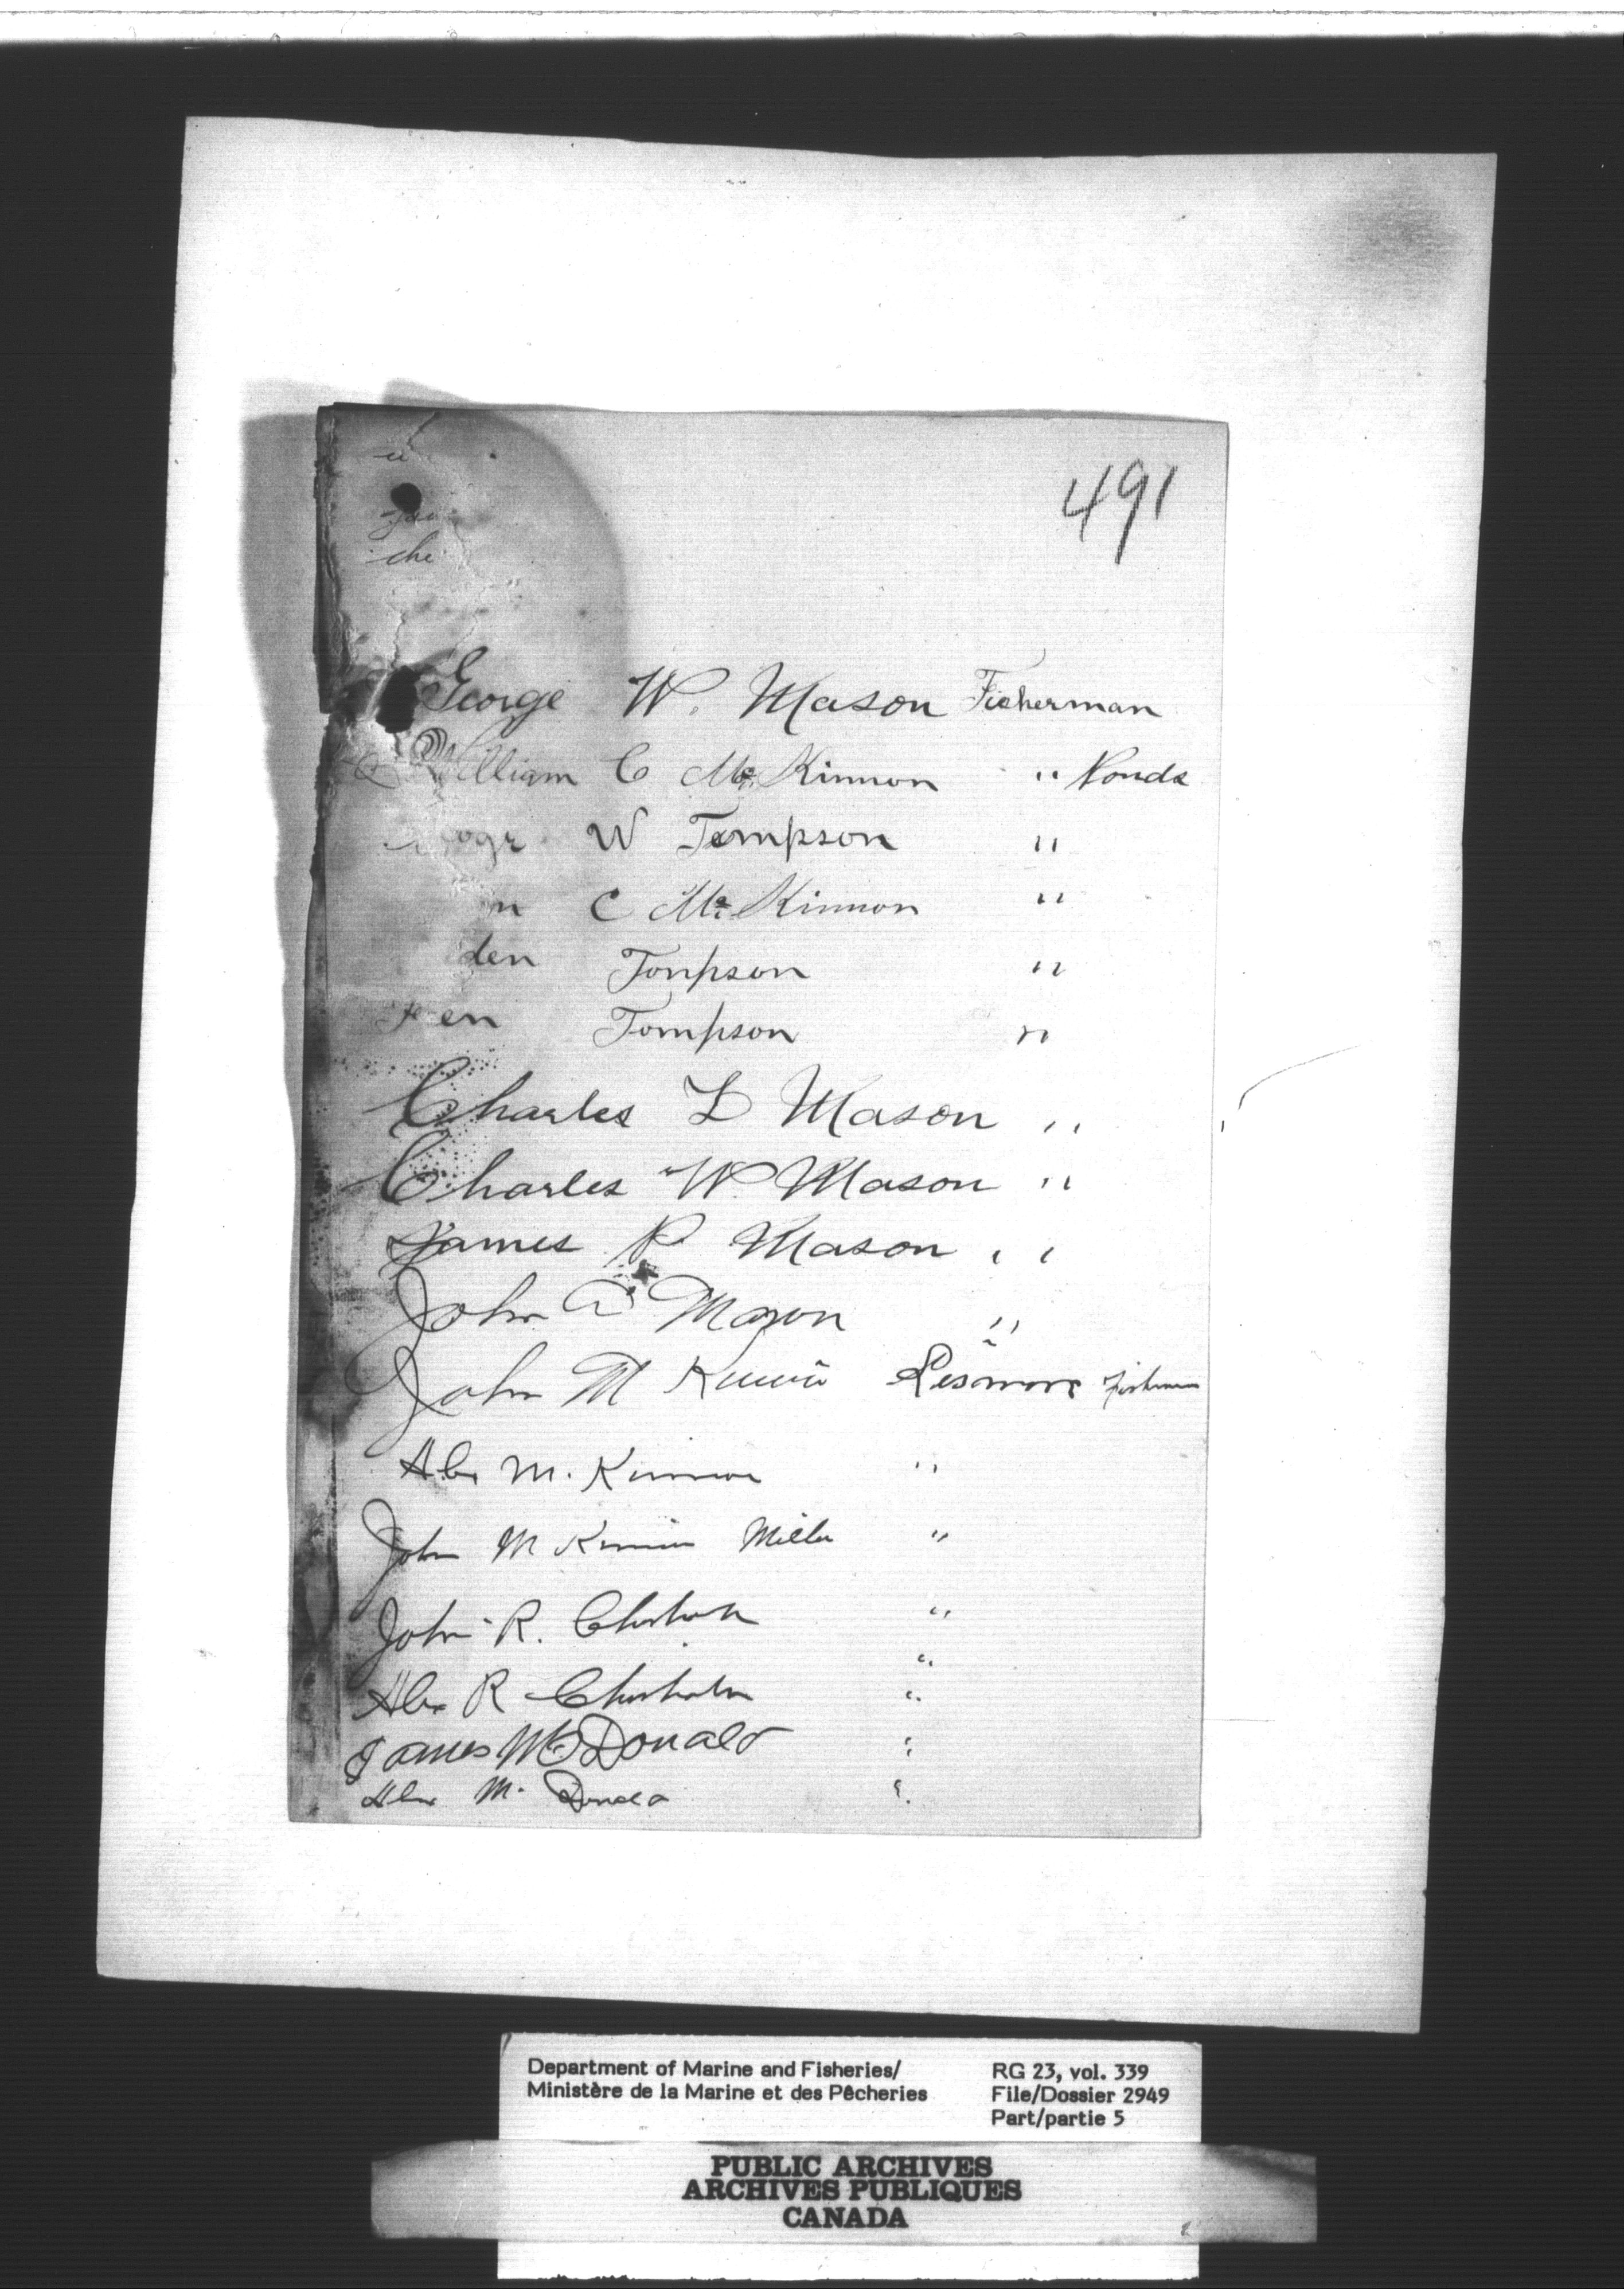 491
che
George W. Mason Fisherman
William C McKinnon " Ponds
W Tompson "
n C McKinnon "
den Tonpson "
en Tompson "
Charles L Mason "
Charles W. Mason "
James P Mason "
John A Mason "
John McKinnon Lismore Fisherman
Alex McKinnon "
John McKinnon Miller "
John R. Chisholm "
"
Alex R Chisholm "
James McDonald "
Alex McDonald "
Department of Marine and Fisheries/ RG 23, vol. 339
Ministère de la Marine et des Pêcheries File/Dossier 2949
Part/partie 5
PUBLIC ARCHIVES
ARCHIVES PUBLIQUES
CANADA